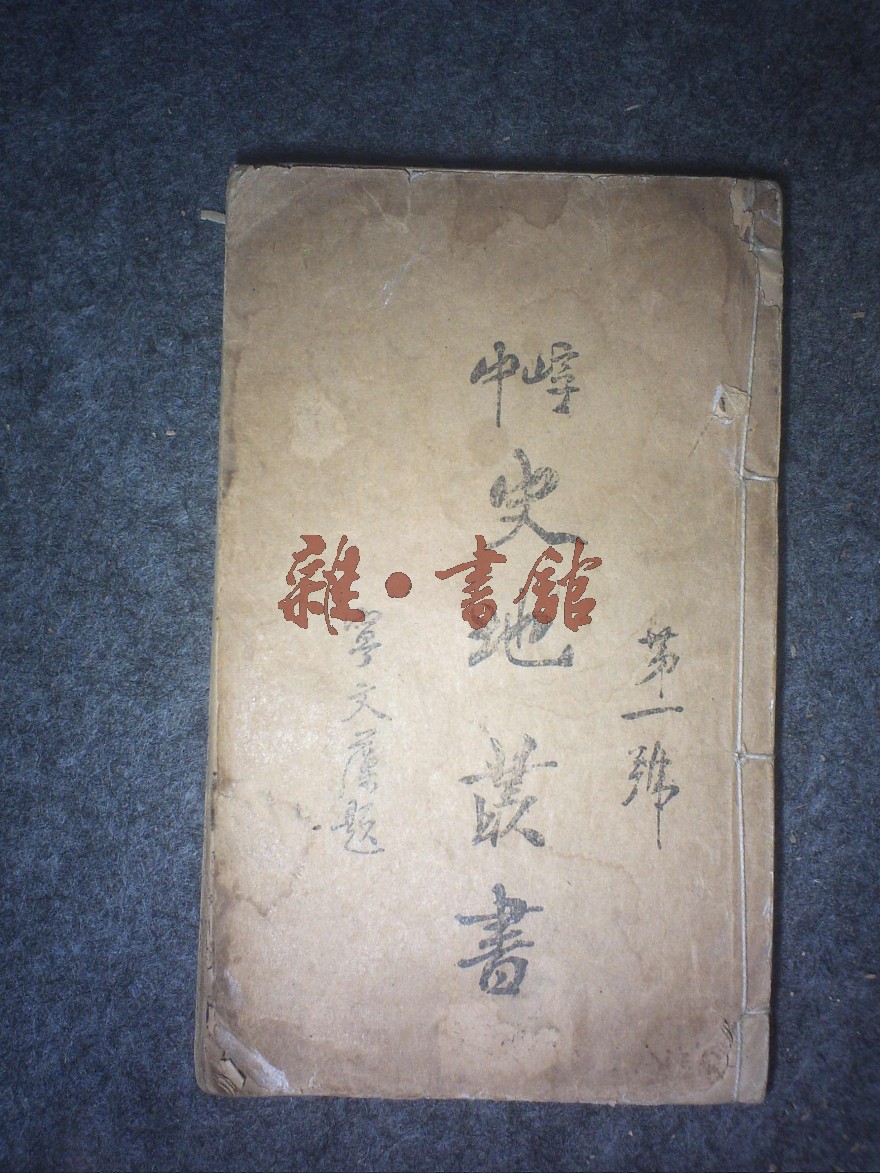 第一號
崞中
史地叢書
文藻題
雜·書館